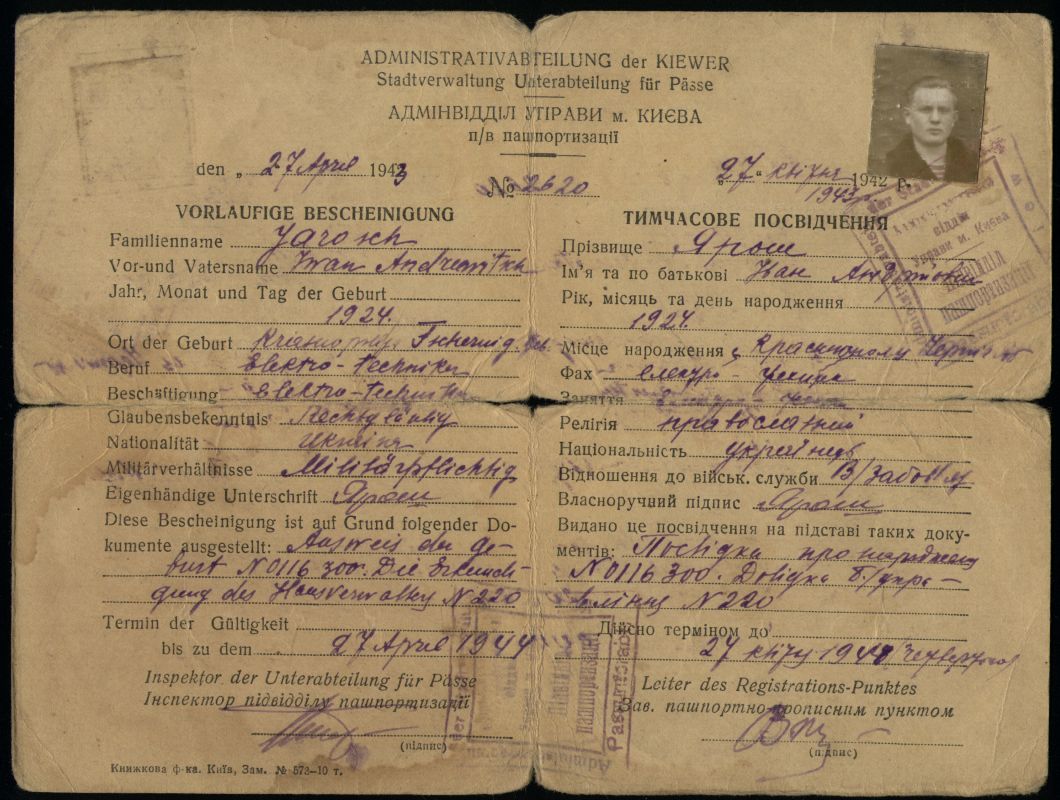 ADMINISTRATIVABTEILUNG der KIEWER
Stadtverwaltung Unterabteilung für Pässe
АДМІНВІДДІЛ УПРАВИ м. КИЄВА
п/в пашпортизації
den „ 27 April 1943
№ 2620
„27“ квітня 1942 р.
1943
VORLAUFIGE BESCHEINIGUNG
Familienname Jarosch
Vor-und Vatersname Iwan
Jahr, Monat und Tag der Geburt
1924.
Ort der Geburt
Beruf Elektro-Techniker
Beschäftigung - Elektro-Techniker
Glaubensbekenntnis Rechtgläubig
Nationalität Ukrainer
Militärverhältnisse Militärpflichtig
Eigenhändige Unterschrift Ярош
Diese Bescheinigung ist auf Grund folgender Do-
kumente ausgestellt: Ausweis der Ge-
burt N 0116 300. Die
des Hausverwalters N 220
Termin der Gültigkeit
bis zu dem 27 April 1944
Inspektor der Unterabteilung für Pässe
Інспектор підвідділу пашпортизації
(підпис)
Книжкова ф-ка. Київ, Зам. № 573–10 т.
ТИМЧАСОВЕ ПОСВІДЧЕННЯ
Прізвище Ярош
Ім'я та по батькові Іван
Рік, місяць та день народження
1924.
Місце народження
Фах електро-
Заняття
Релігія православний
Національність українець
Відношення до військ. служби
Власноручний підпис Ярош
Видано це посвідчення на підставі таких доку-
ментів: про народження
N 0116 300. Довідка б/упра-
вління N 220
Дійсно терміном до
27 квітня 1944
Leiter des Registrations-Punktes
Зав. пашпортно-прописним пунктом
(підпис)